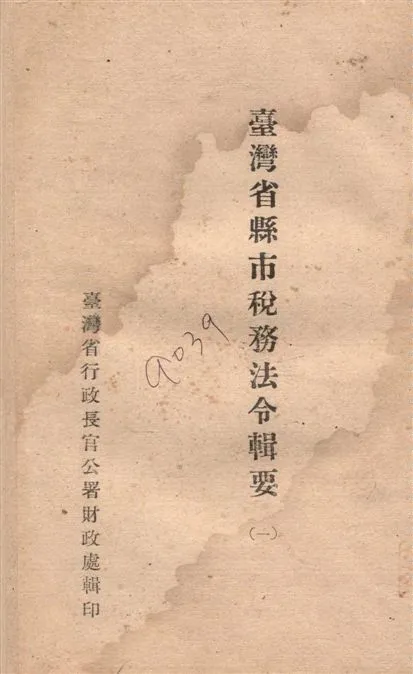 臺灣省縣市稅務法令輯要
(一)
9039
臺灣省行政長官公署財政處輯印